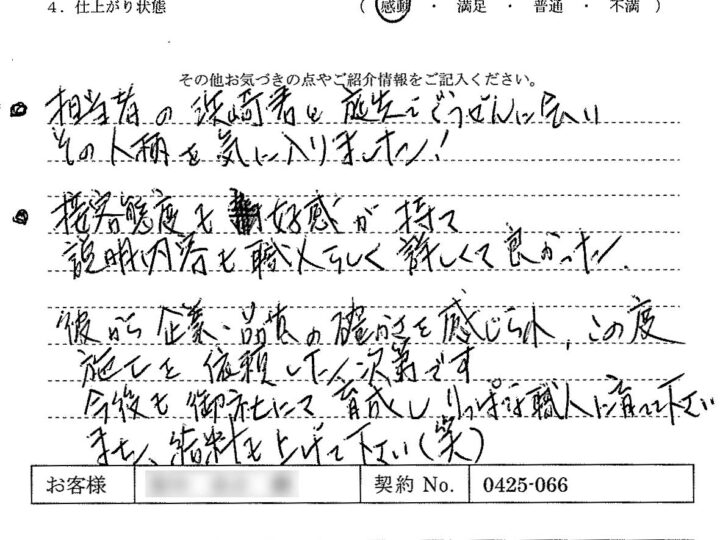 4．仕上がり状態 （ 感動 ・ 満足 ・ 普通 ・ 不満 ）
その他お気づきの点やご紹介情報をご記入ください。
担当者の浜崎君と施先でぐうぜんに会い
その人柄を気に入りました！
接客態度も好感が持て
説明内容も職人らしく詳しくて良かった。
彼から企業・品質の確かさを感じられ、この度
施工を依頼した次第です
今後も御社にて育成しりっぱな職人に育てて下さい
また、給料も上げて下さい（笑）
お客様 契約 No. 0425-066